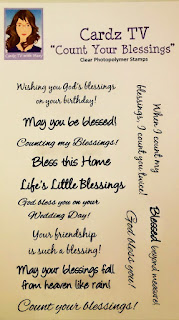 Cardz TV
"Count Your Blessings"
Clear Photopolymer Stamps
Wishing you God's blessings
on your birthday!
May you be blessed!
Counting my Blessings!
Bless this Home
Life's Little Blessings
God bless you on your
Wedding Day!
Your friendship
is such a blessing!
May your blessings fall
from heaven like rain!
Count your blessings!
When I count my
blessings, I count you twice!
Blessed beyond measure!
God bless you!